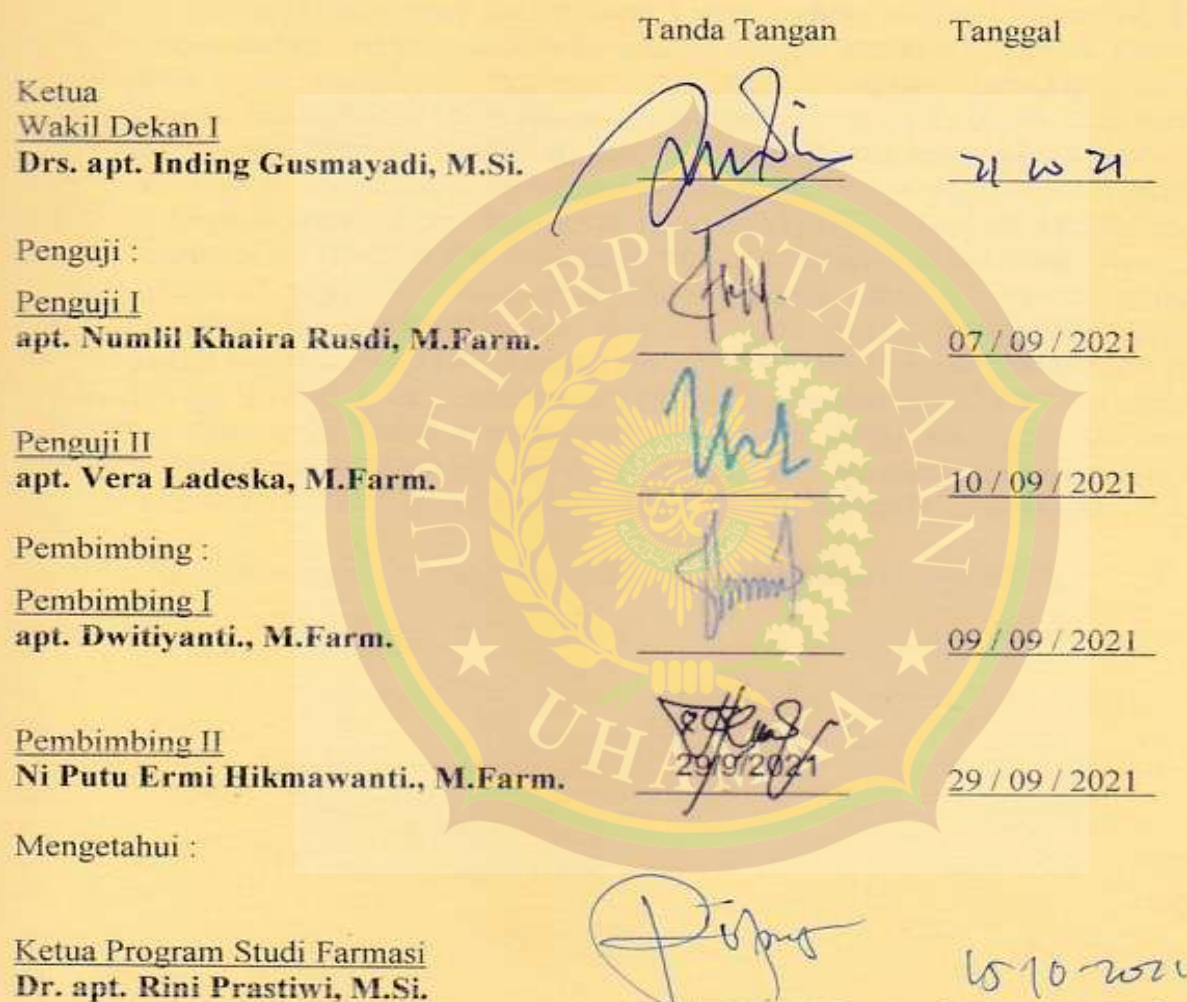 Tanda Tangan Tanggal
Ketua
Wakil Dekan I
Drs. apt. Inding Gusmayadi, M.Si. 21 10 21
Penguji :
Penguji I
apt. Numlil Khaira Rusdi, M.Farm. 07 / 09 / 2021
Penguji II
apt. Vera Ladeska, M.Farm. 10 / 09 / 2021
Pembimbing :
Pembimbing I
apt. Dwitiyanti., M.Farm. 09 / 09 / 2021
Pembimbing II
29/9/2021
Ni Putu Ermi Hikmawanti., M.Farm. 29 / 09 / 2021
Mengetahui :
Ketua Program Studi Farmasi
Dr. apt. Rini Prastiwi, M.Si. 10-2021
UPT PERPUSTAKAAN
UHAMKA